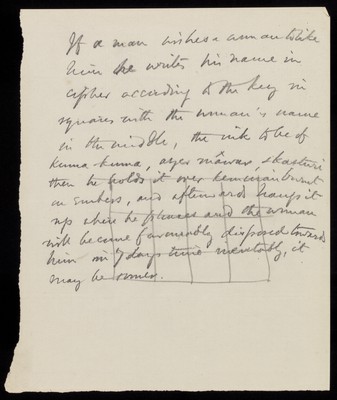 If a man wishes a woman to like
him he writes his name in
cipher according to the key in
squares with the woman's name
in the middle, the ink to be of
kuma-kuma, ayer mawar, & kasturi
then he holds it over kemenian burnt
on embers, and afterwards hangs it
up where he pleases and the woman
will become favourably disposed towards
him in 7 days time inevitably, it
may be sooner.